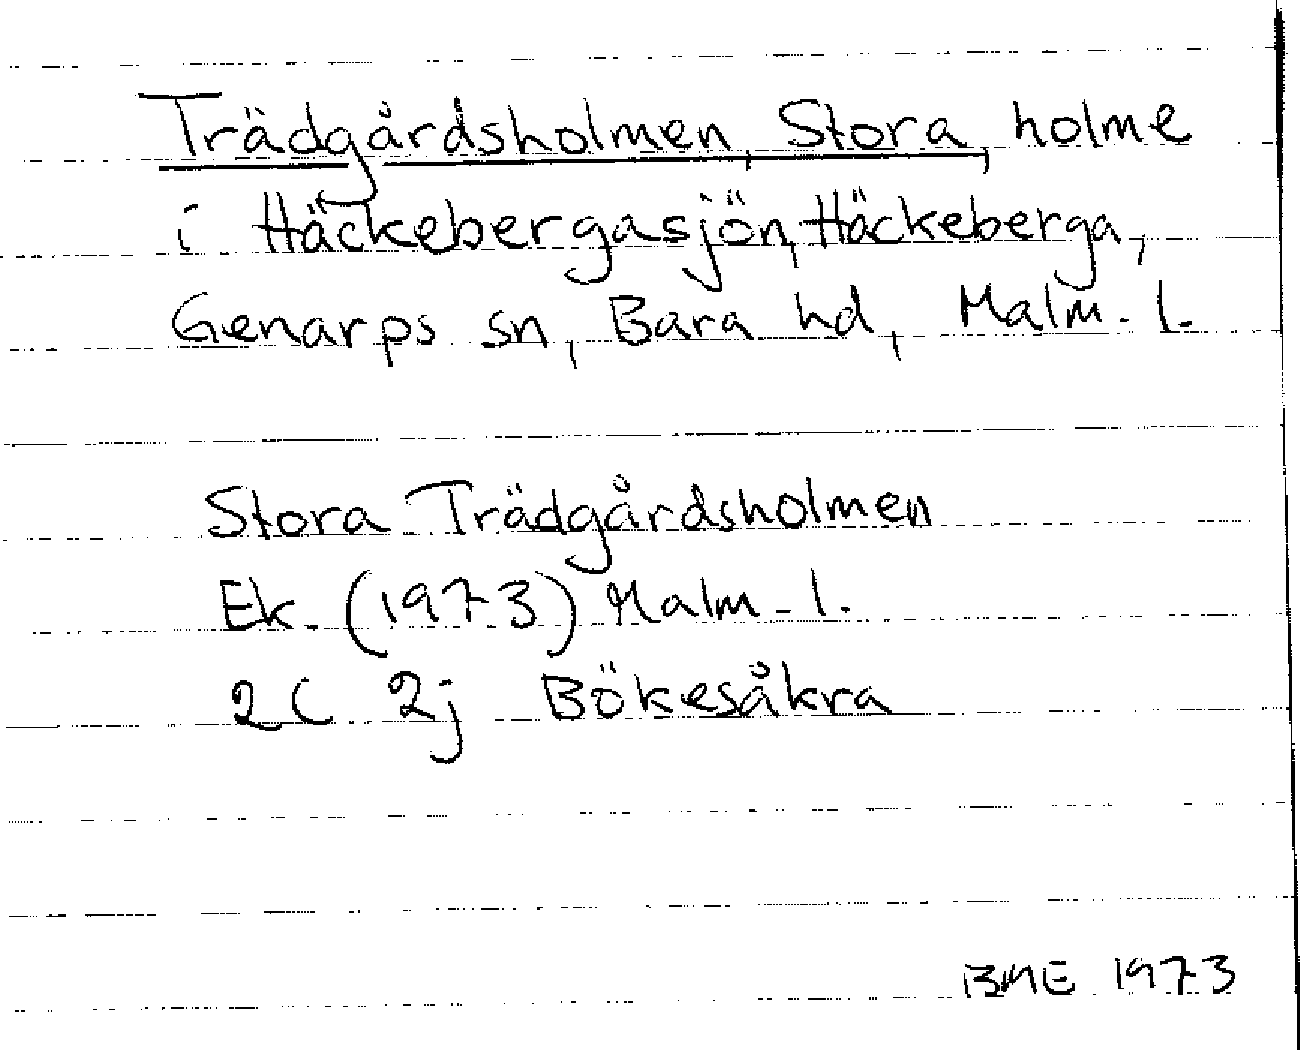 Trädgårdsholmen, Stora, holme
i Häckebergasjön, Häckeberga,
Genarps sn, Bara hd, Malm. l.
Stora Trädgårdsholmen
Ek. (1973) Malm. l.
2C 2j Bökesåkra
BME 1973